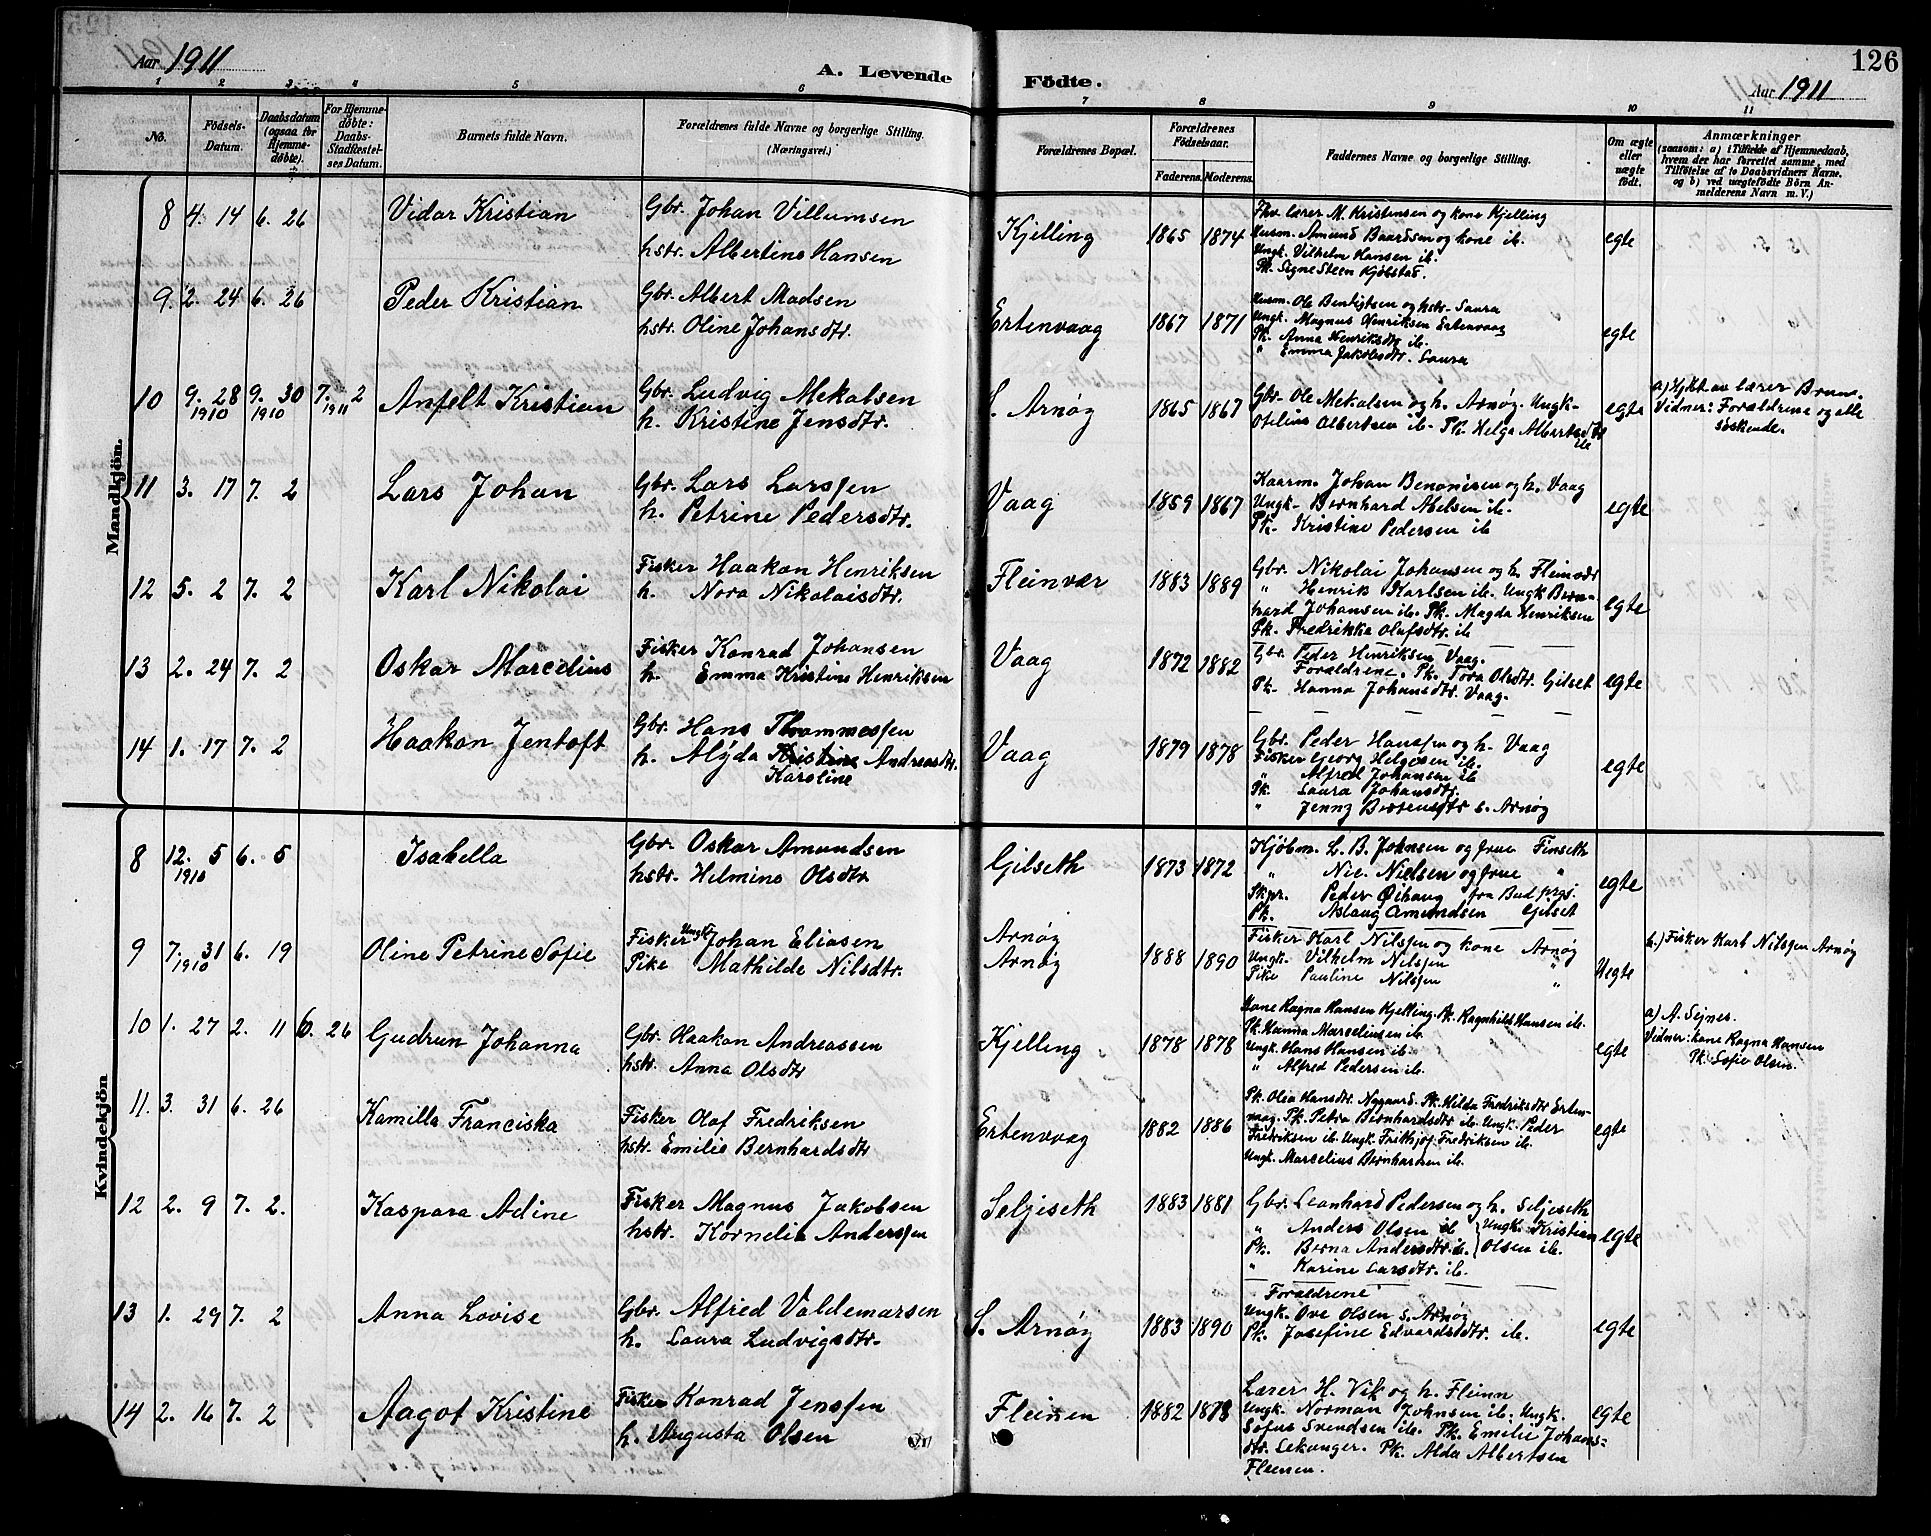 126
Aar 1911
A. Levende Födte.
Aar 1911
1 2 3 4 5 6 7 8 9 10 11
No.
Födsels-Datum.
Daabsdatum (ogsaa for Hjemme-döbte).
For Hjemme-döbte: Daabs-Stadfæstel-ses Datum.
Barnets fulde Navn.
Forældrenes fulde Navne og borgerlige Stilling.
(Næringsvei.)
Forældrenes Bopæl.
Forældrenes Födselsaar.
Faderens. Moderens.
Faddernes Navne og borgerlige Stilling.
Om ægte eller uægte födt.
Anmærkninger
(saasom: a) i Tilfælde af Hjemmedaab, hvem der har forrettet samme, med Tilföielse af to Daabsvidners Navne, og b) ved uægtefödte Börn An-melderens Navn m. V.)
Mandkjön.
8 4. 14 6. 26 Vidar Kristian
Gbr. Johan Villumsen
hstr. Albertine Hansen
Kjelling 1865 1874
Fhv. lærer M. Kristensen og kone Kjelling
Husm. Amund Baardsen og kone ib.
Ungk. Vilhelm Hansen ib.
Pk. Signe Steen Kjøbstad.
egte
9. 2. 24 6. 26 Peder Kristian
Gbr. Albert Madsen
hstr. Oline Johansdtr.
Ertenvaag 1867 1871
Husm. Ole Bentigtsen og hstr. Saura
Ungk. Magnus Henriksen Ertenvaag
Pk. Anna Henriksdtr ib.
" Emma Jakobsdtr. Saura
egte
10 9. 28 1910 9. 30 1910 7. 2 1911 Anfelt Kristian
Gbr. Ludvig Mekalsen
h. Kristine Jensdtr.
S. Arnøy 1865 1867
Gbr. Ole Mekalsen og h. Arnøy. Ungk.
Otelius Albertsen ib. Pk. Helga Albertsdtr
ib
egte
a) Hjdbt av lærer Bruun.
Vidner: Forældrene og alle
søskende.
11 3. 17 7. 2 Lars Johan
Gbr. Lars Larssen
h. Petrine Pedersdtr.
Vaag 1859 1867
Kaarm. Johan Benonisen og h. Vaag
Ungk. Bernhard Abelsen ib.
Pk. Kristine Pedersen ib
egte
12 5. 2 7. 2 Karl Nikolai
Fisker Haakon Henriksen
h. Nora Nikolaisdtr.
Fleinvær 1883 1889
Gbr. Nikolai Johansen og h. Fleinvær
" Henrik Karlsen ib. Ungk Bern-
hard Johansen ib. Pk. Magda Henriksen
Pk. Fredrikka Olufsdtr. ib
egte
13 2. 24 7. 2 Oskar Marcelius
Fisker Konrad Johansen
h. Emma Kristine Henriksen
Vaag 1872 1882
Gbr. Peder Henriksen Vaag.
Forældrene. Pk. Tora Olsdtr. Gilset
Pk. Hanna Johansdtr. Vaag.
egte
14 1. 17 7. 2 Haakon Jentoft
Gbr. Hans Thommessen
h. Alyda Kristine Andreasdtr.
Karoline
Vaag 1879 1878
Gbr. Peder Hanssen og h. Vaag
Fisker Georg Helgesen ib.
" Alfred Johansen ib
Pk. Laura Johansdtr.
" Jenny Berensdtr s. Arnøy
egte
Kvindekjön
8 12. 5 1910 6. 5 Isabella
Gbr. Oskar Amundsen
hstr. Helmine Olsdtr
Gilseth 1873 1872
Kjøbm. L. B. Johnsen og frue Finseth
" Nic. Nielsen og frue "
Skpr. Peder Øihaug fra Bud prgj.
Pk. Aslaug Amundsen Gilset
egte
9 7. 31 1910 6. 19 Oline Petrine Sofie
Fisker Ungk. Johan Eliasen
Pike Mathilde Nilsdtr.
Arnøy
Arnøy
1888 1890
Fisker Karl Nilssen og kone Arnøy
Ungk. Vilhelm Nilssen "
Pike Pauline Nilssen "
Uegte
b.) Fisker Karl Nilssen Arnøy
10 1. 27 2. 11 6. 26 Gudrun Johanna
Gbr. Haakon Andreassen
hstr. Anna Olsdtr
Kjelling 1878 1878
Kone Ragna Hansen Kjelling. Pk. Ragnhild Hansen ib.
Pk. Hanna Marcelinsen ib.
Ungk. Hans Hansen ib.
" Alfred Pedersen ib.
egte
a) A. Sejnes.
Vidner: kone Ragna Hansen
Pk. Sofie Olsen.
11. 3. 31 6. 26 Kamilla Franciska
Fisker Olaf Fredriksen
hstr. Emilie Bernhardsdtr
Ertenvaag 1882 1886
Pk. Olea Hansdtr. Nygaard. Pk. Hilda Fredriksdtr Erten-
vaag. Pk. Petra Bernhardsdtr ib. Ungk. Peder
Fredriksen ib. Ungk. Frithjof Fredriksen ib.
Ungk. Marcelius Bernhardsen ib.
egte
12 2. 9 7. 2. Kaspara Adine
Fisker Magnus Jakobsen
hstr. Kornelia Anderssen
Seljeseth 1883 1881
Gbr. Leonhard Pedersen og h. Seljeseth
" Anders Olsen ib Ungk. Kristian
Pk. Berna Andersdtr. ib. Olsen ib.
" Karine Larsdtr. ib.
egte
13 1. 29 7. 2 Anna Lovise
Gbr. Alfred Valdemarsen
h. Laura Ludvigsdtr.
S. Arnøy 1883 1890
Forældrene
Ungk. Ove Olsen s. Arnøy
Pk. Josefine Edvardsdtr. ib.
egte
14 2. 16 7. 2 Aagot Kristine
Fisker Konrad Jenssen
h. Augusta Olsen
Fleinen 1882 1878
Lærer H. Vik og h. Fleinn
Ungk. Norman Johnsen ib. Ungk.
Sofus Svendsen ib. Pk. Emilie Johans-
dtr. Sekanger. Pk. Alda Albertsen
Fleinen.
egte